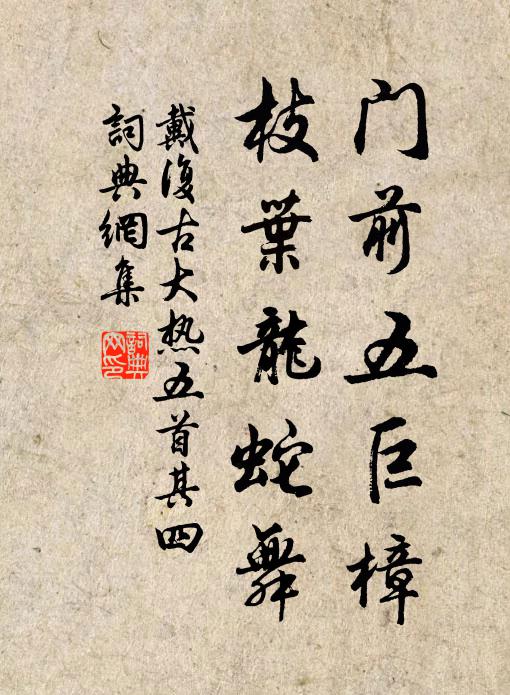 门前五巨樟
枝葉龍蛇舞
戴復古大热五首其四
詞典網集
詞典網印